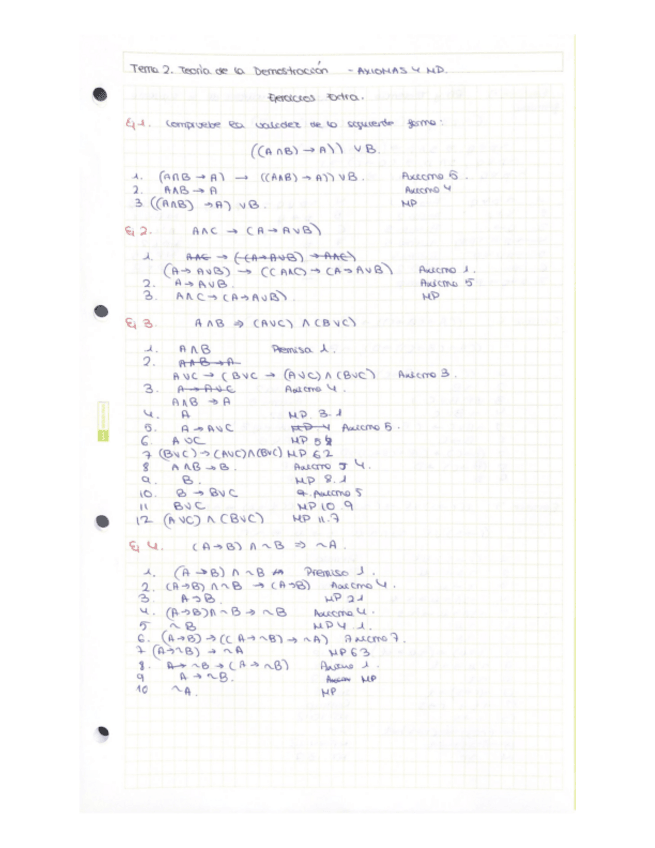 Tema 2. Teoría de la Demostración - AXIOMAS Y MD.
Ejercicios Extra.
Ej 1. Compruebe la validez de la siguiente forma:
((A∧B) → A)) ∨ B.
1. (A∧B → A) → ((A∧B) → A)) ∨ B. Axioma 5.
2. A∧B → A Axioma 4
3 ((A∧B) → A) ∨ B. MP
Ej 2. A∧C → (A → A∨B)
1. A∧C → ((A→A∨B) → A∧C)
(A → A∨B) → ((A∧C) → (A → A∨B) Axioma 1.
2. A → A∨B. Axioma 5
3. A∧C → (A→A∨B). MP
Ej 3. A∧B ⇒ (A∨C) ∧ (B∨C)
1. A∧B Premisa 1.
2. A∧B → A
A∨C → (B∨C → (A∨C) ∧ (B∨C) Axioma 3.
3. A → A∨C Axioma 4.
A∧B → A
4. A MP 3.1
5. A → A∨C Axioma 5.
6. A∨C MP 5
7 (B∨C) → (A∨C) ∧ (B∨C) MP 6 2
8 A∧B → B. Axioma 4.
9. B. MP 8.1
10. B → B∨C Axioma 5
11 B∨C MP 10 9
12. (A∨C) ∧ (B∨C) MP 11.7
Ej 4. (A→B) ∧ ¬B ⇒ ¬A.
1. (A→B) ∧ ¬B Premisa 1.
2. (A→B) ∧ ¬B → (A→B) Axioma 4.
3. A→B. MP 2 1
4. (A→B)∧¬B → ¬B Axioma 4.
5 ¬B MP 4 1.
6. (A→B) → ((A→¬B) → ¬A) Axioma 7.
7 (A→¬B) → ¬A MP 6 3
8. ¬B → (A→¬B) Axioma 1.
9 A → ¬B. MP
10 ¬A. MP